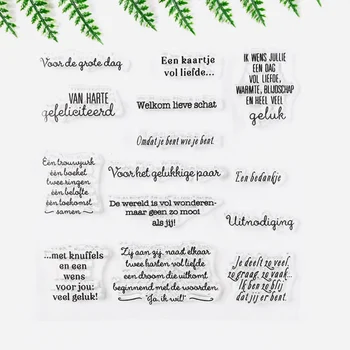 Voor de grote dag
Een kaartje
vol liefde...
IK WENS JULLIE
EEN DAG
VOL LIEFDE,
WARMTE, BLIJDSCHAP
EN HEEL VEEL
geluk
VAN HARTE
gefeliciteerd
Welkom lieve schat
Omdat je bent wie je bent.
Eén trouwjurk
één boeket
twee ringen
één belofte
één toekomst
samen
Voor het gelukkige paar
Een bedankje
De wereld is vol wonderen-
maar geen zo mooi
als jij!
Uitnodiging
...met knuffels
en een
wens
voor jou:
veel geluk!
Zij aan zij, naast elkaar
twee harten vol liefde
een droom die uitkomt
beginnend met de woorden
"Ja, ik wil!"
Je deelt zo veel,
zo graag, zo vaak...
Ik ben zo blij
dat jij er bent.